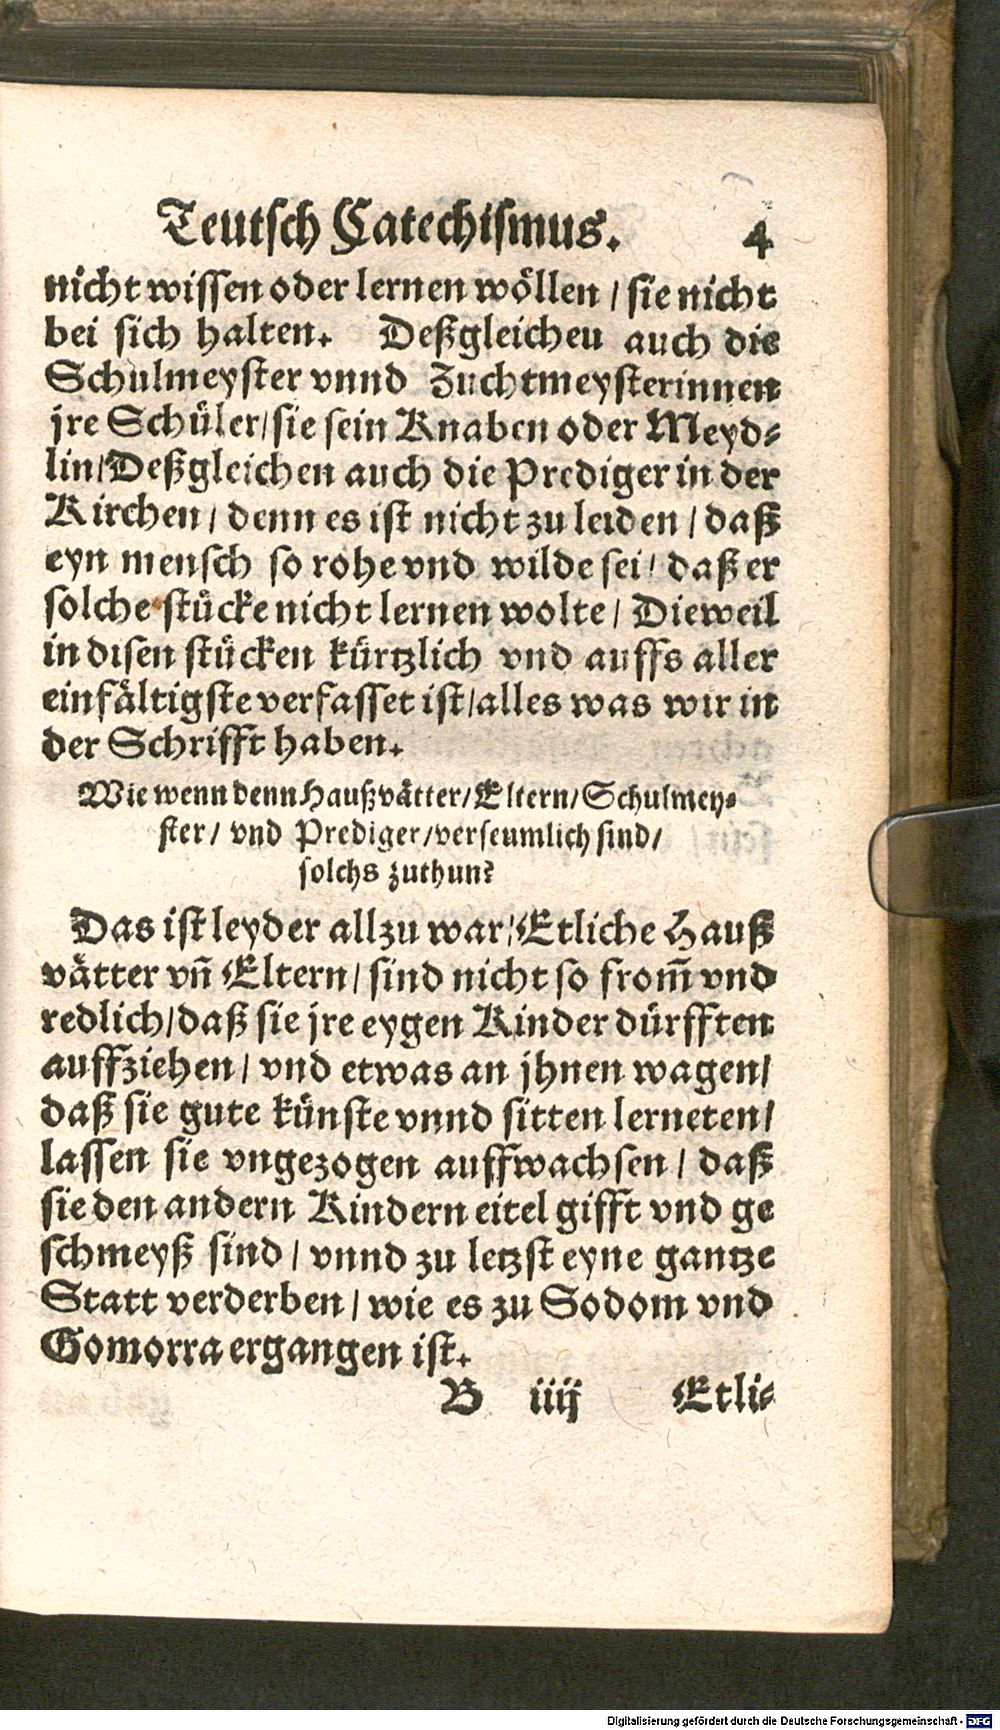 Teutsch Catechismus. 4
nicht wissen oder lernen wöllen / sie nicht
bei sich halten. Deßgleicheu auch die
Schulmeyster vnnd Zuchtmeysterinnen
jre Schüler / sie sein Knaben oder Meyd-
lin / Deßgleichen auch die Prediger in der
Kirchen / denn es ist nicht zu leiden / daß
eyn mensch so rohe vnd wilde sei / daß er
solche stücke nicht lernen wolte / Dieweil
in disen stücken kürtzlich vnd auffs aller
einfältigste verfasset ist / alles was wir in
der Schrifft haben.
Wie wenn denn Haußvätter / Eltern / Schulmey-
ster / vnd Prediger / verseumlich sind /
solchs zuthun?
Das ist leyder allzu war / Etliche Hauß
vätter vn̄ Eltern / sind nicht so from̄ vnd
redlich / daß sie jre eygen Kinder dürfften
auffziehen / vnd etwas an jhnen wagen /
daß sie gute künste vnnd sitten lerneten /
lassen sie vngezogen auffwachsen / daß
sie den andern Kindern eitel gifft vnd ge
schmeyß sind / vnnd zu letzst eyne gantze
Statt verderben / wie es zu Sodom vnd
Gomorra ergangen ist.
B iiij Etli-
Digitalisierung gefördert durch die Deutsche Forschungsgemeinschaft - DFG